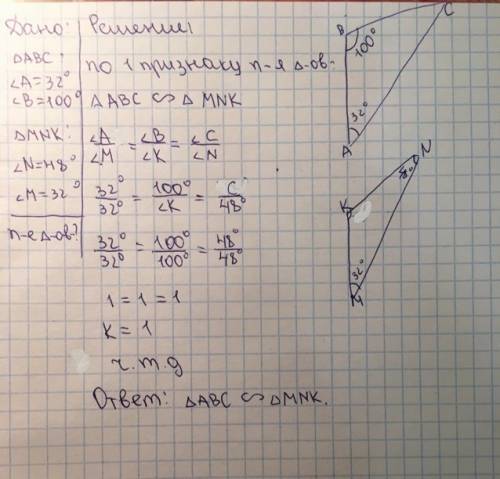 Дано:
ΔABC:
∠A=32°
∠B=100°
ΔMNK:
∠N=48°
∠M=32°
п-е Δ-ов?
Решение:
по 1 признаку п-я Δ-ов.
ΔABC ∽ ΔMNK
∠A/∠M = ∠B/∠K = ∠C/∠N
32°/32° = 100°/∠K = C/48°
32°/32° = 100°/100° = 48°/48°
1 = 1 = 1
K = 1
ч.т.д
Ответ: ΔABC ∽ ΔMNK.
B
C
100°
32°
A
N
48°
K
32°
M